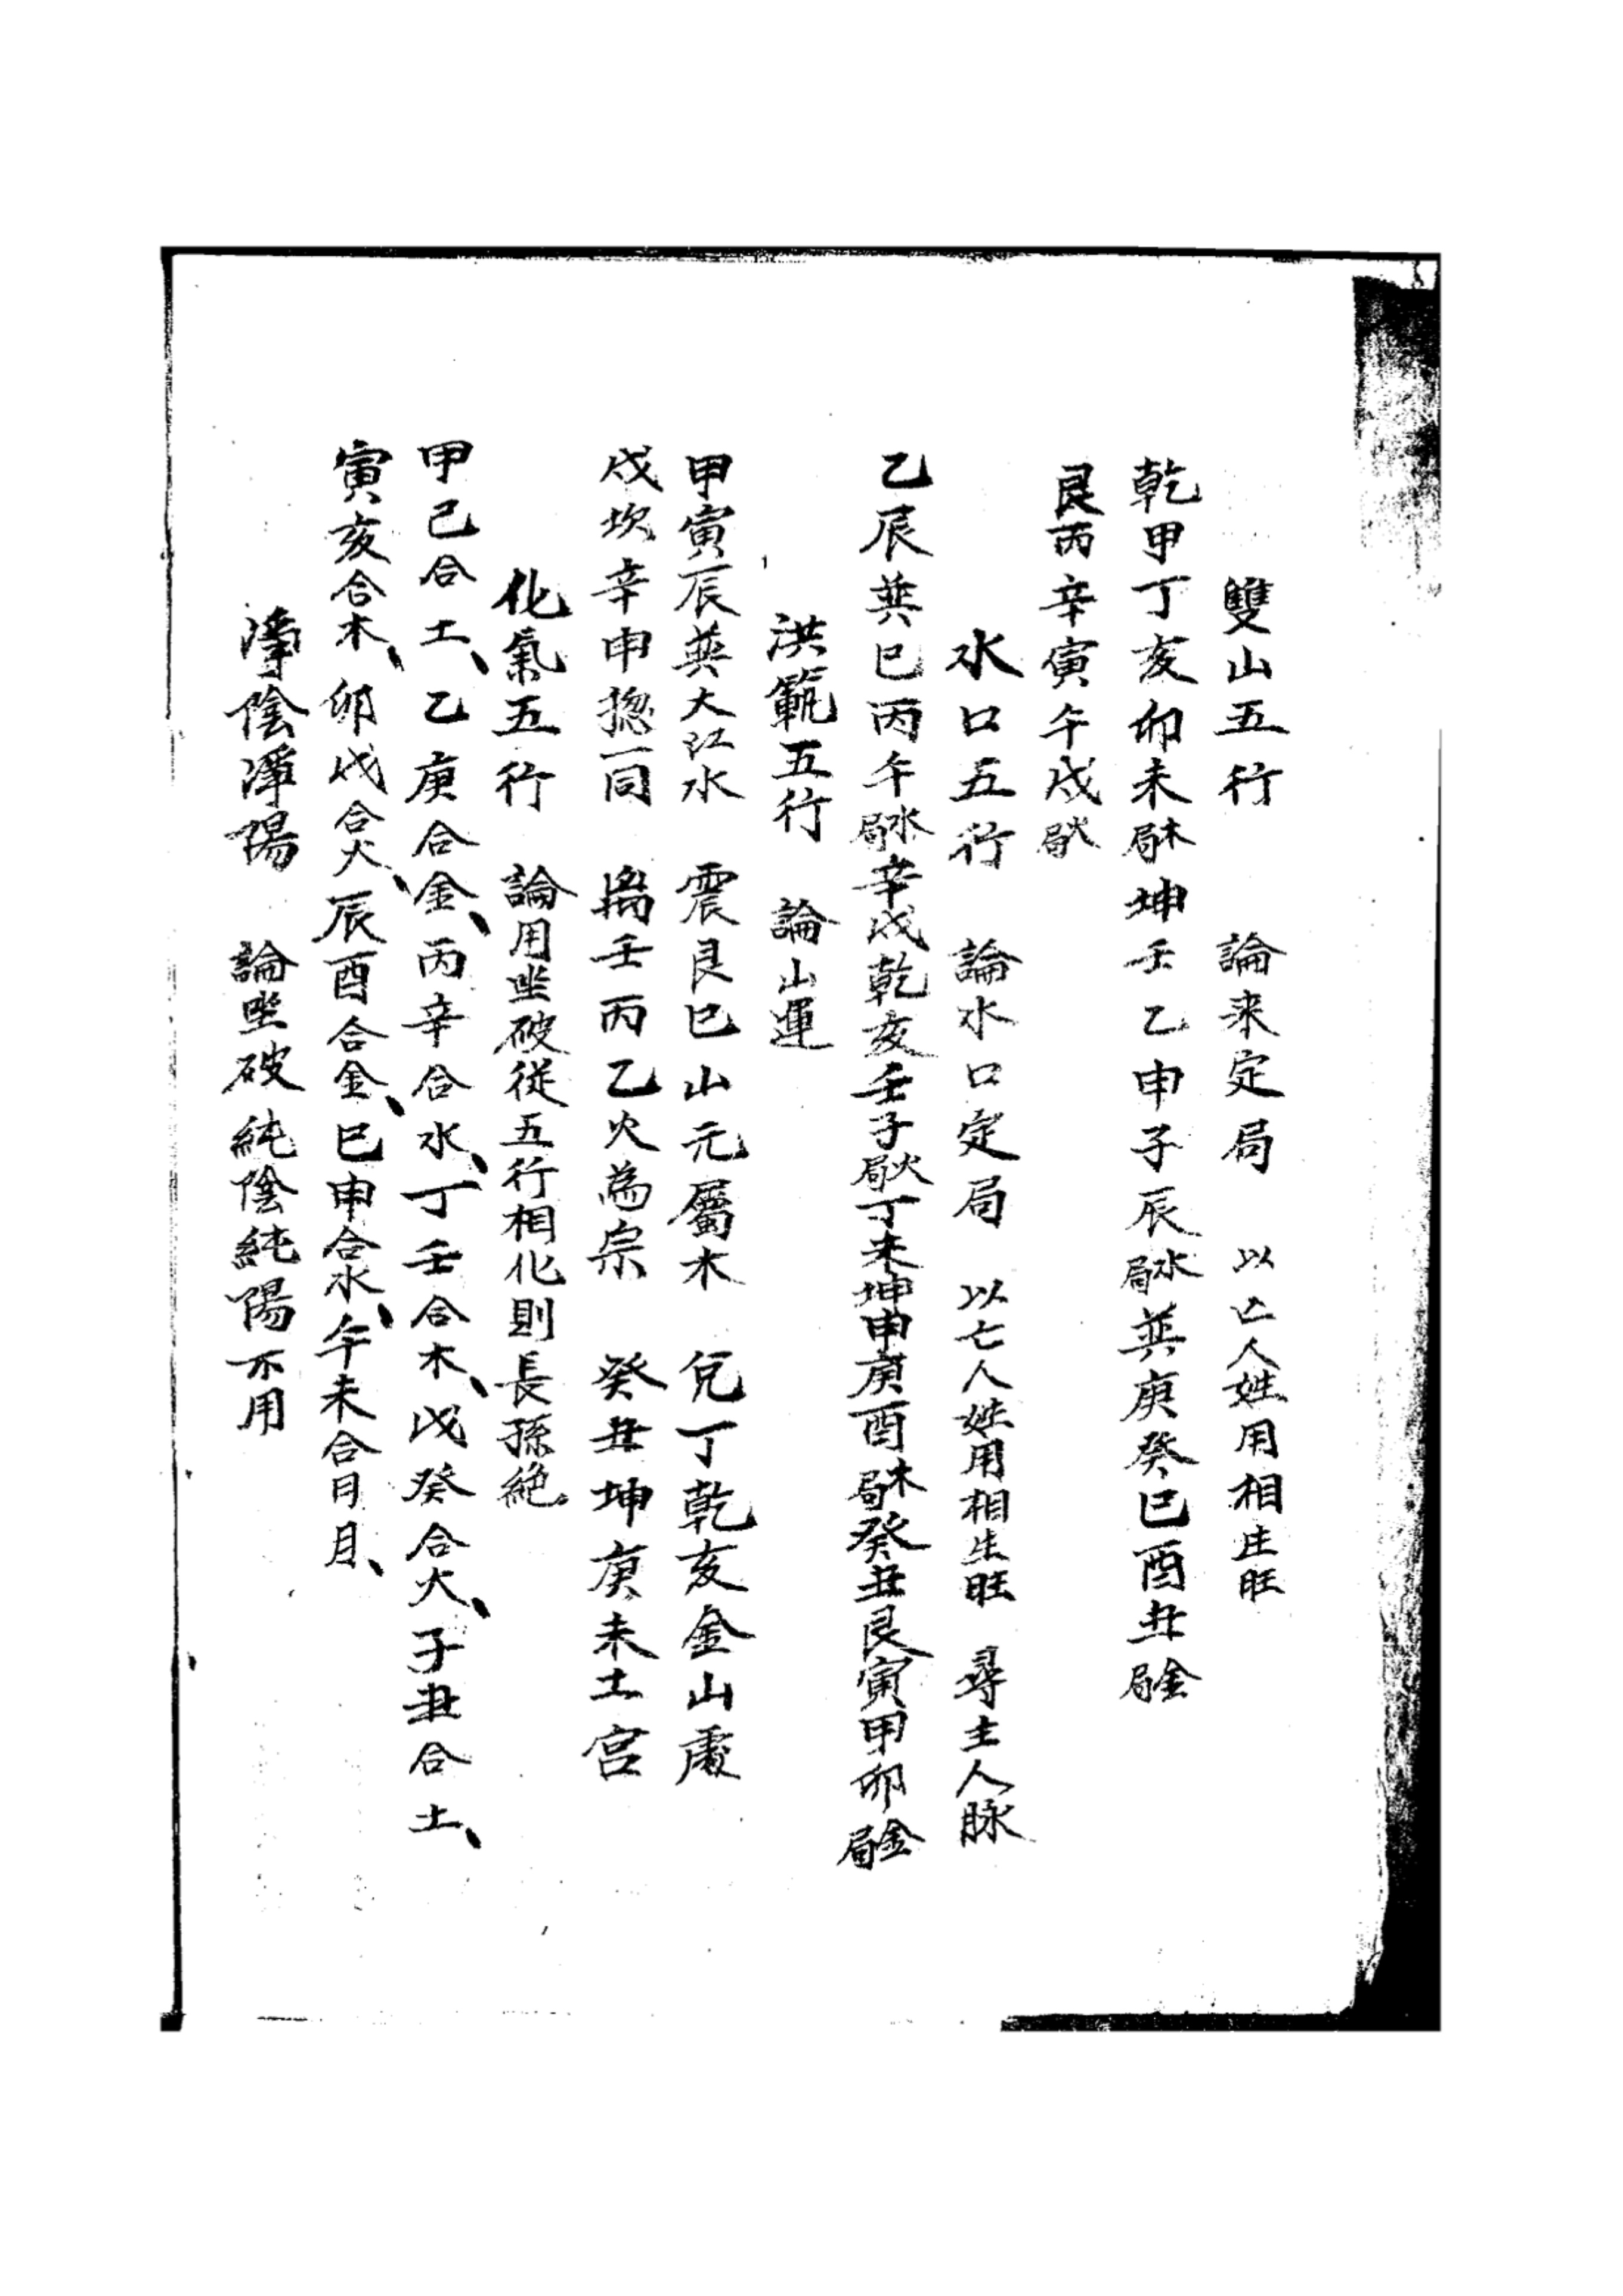 雙山五行 論来定局 以亡人姓用相生旺
乾甲丁亥卯未木局坤壬乙申子辰水局巽庚癸巳酉丑金局
艮丙辛寅午戌火局
水口五行 論水口定局 以亡人姓用相生旺 尋主人脉
乙辰巽巳丙午水局辛戌乾亥壬子火局丁未坤申庚酉木局癸丑艮寅甲卯金局
洪範五行 論山運
甲寅辰巽大江水 震艮巳山元屬木 兌丁乾亥金山處
戌坎辛申揔一同 离壬丙乙火為宗 癸丑坤庚未土宮
化氣五行 論用坐破從五行相化則長孫絶
甲己合土、乙庚合金、丙辛合水、丁壬合木、戊癸合火、子丑合土、
寅亥合木、卯戌合火、辰酉合金、巳申合水、午未合日月、
淨陰淨陽 論坐破純陰純陽不用